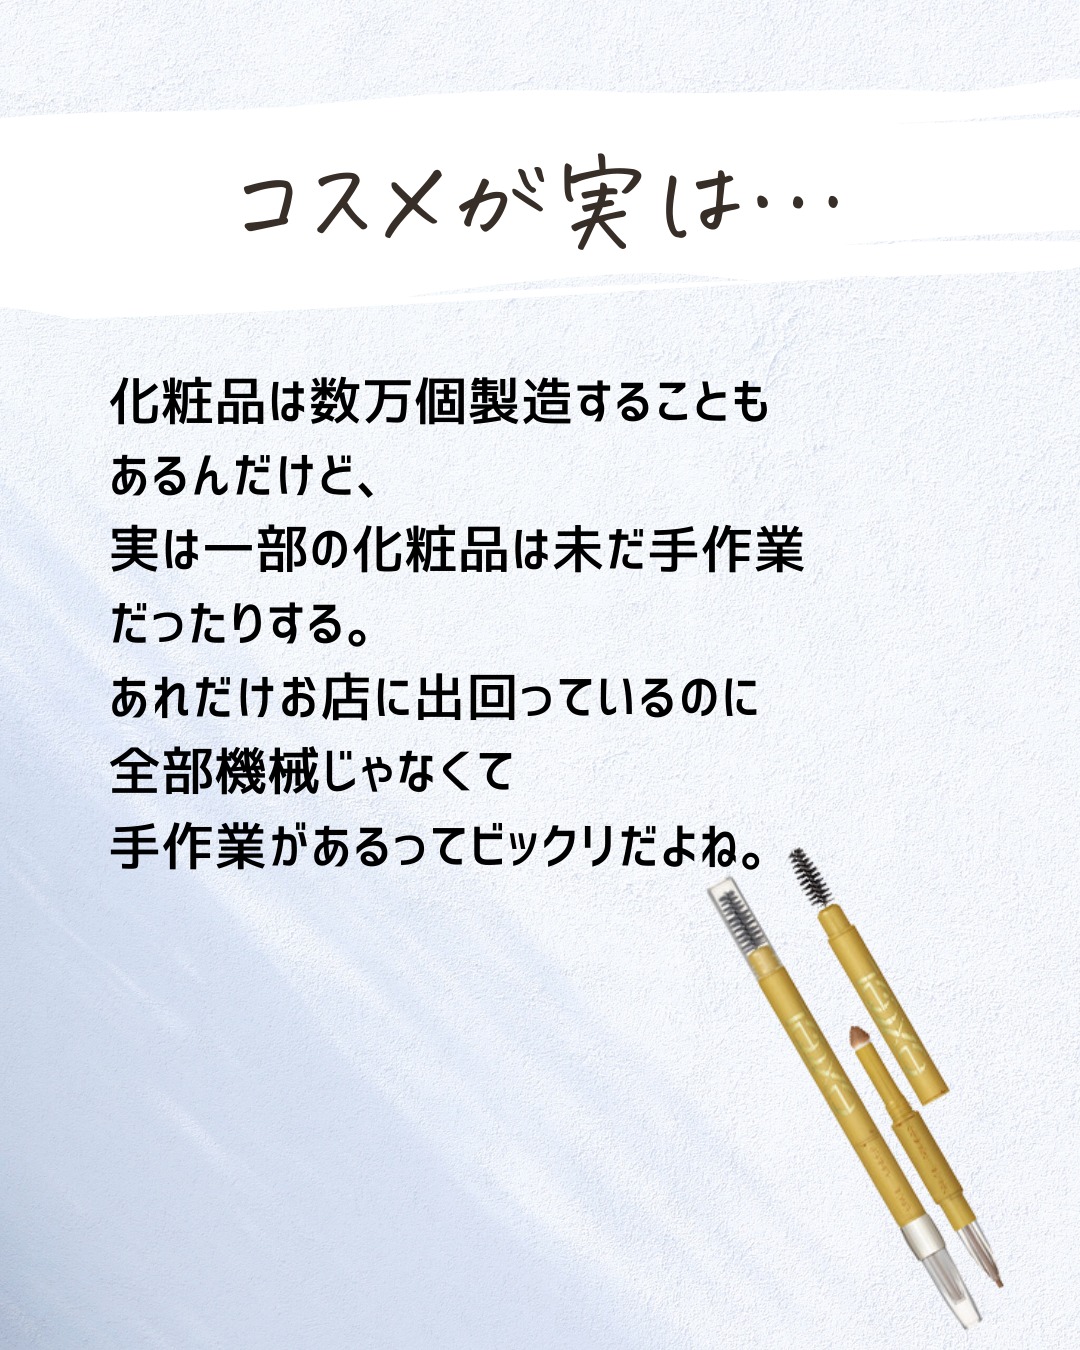 コスメが実は・・・
化粧品は数万個製造することも
あるんだけど、
実は一部の化粧品は未だ手作業
だったりする。
あれだけお店に出回っているのに
全部機械じゃなくて
手作業があるってビックリだよね。